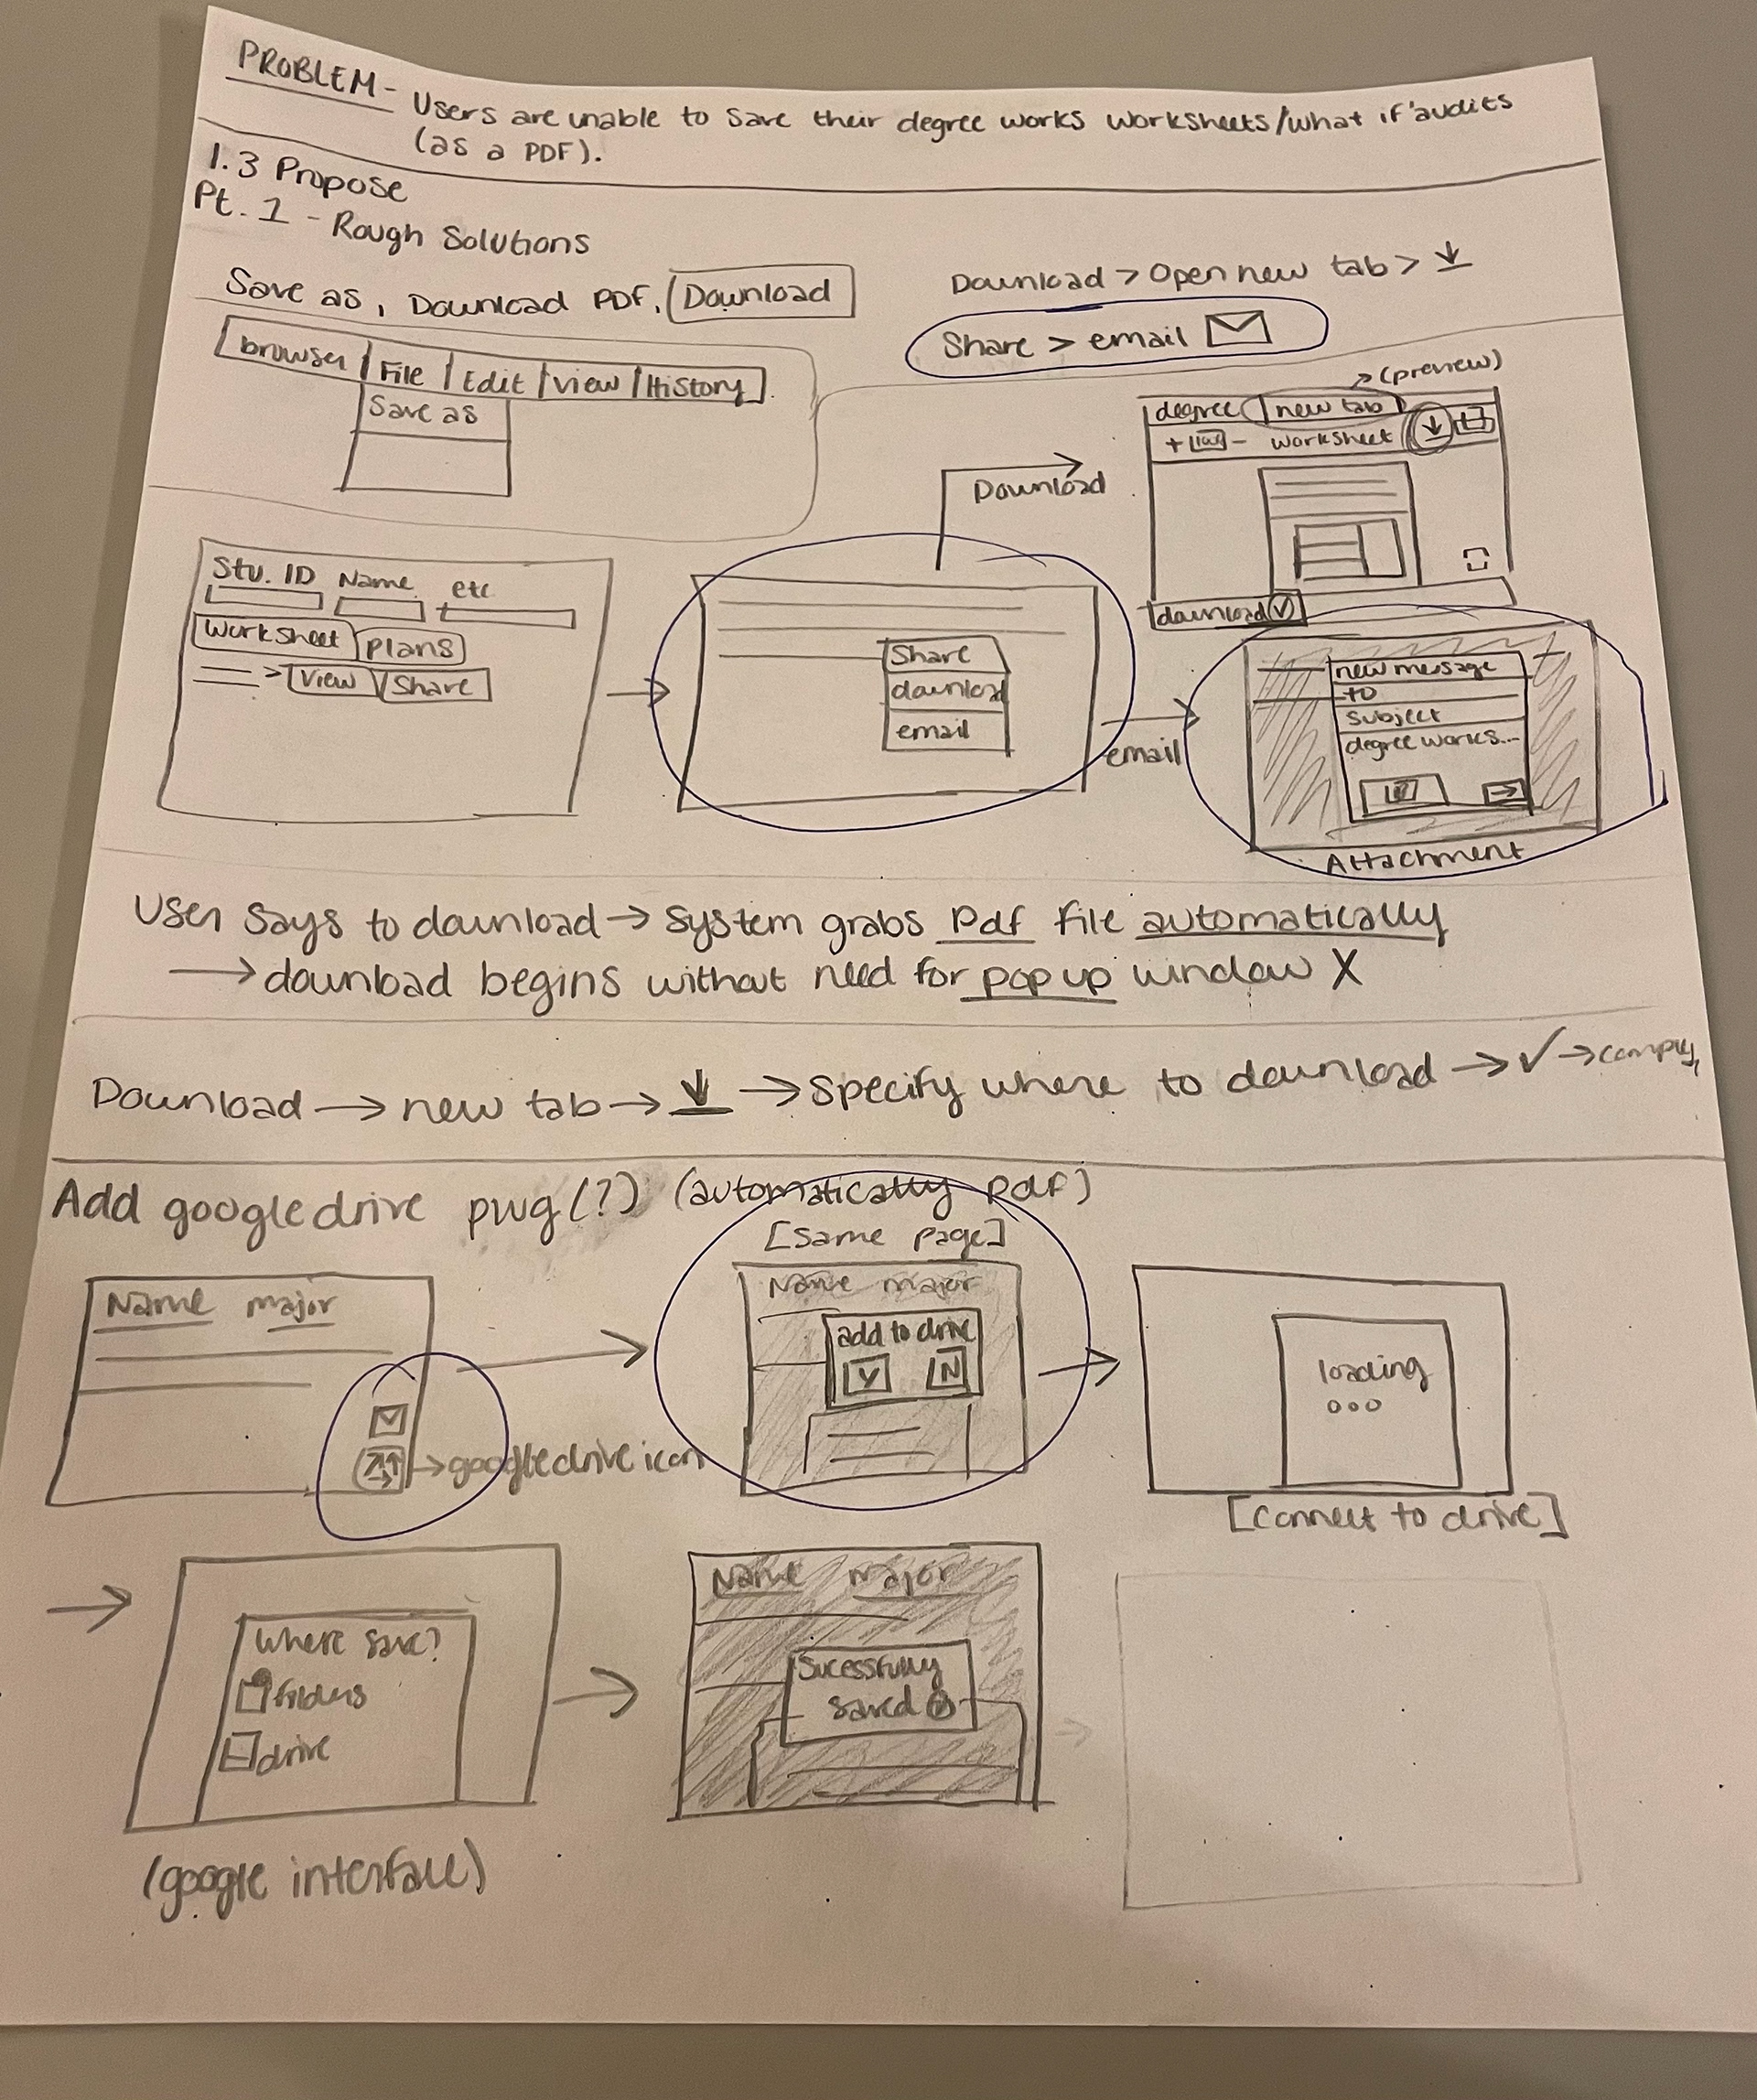 PROBLEM - Users are unable to save their degree works worksheets/what if audits
(as a PDF).
1.3 Propose
Pt. 1 - Rough Solutions
Save as, Download PDF, Download
Download > Open new tab > ↓
Share > email
browser File Edit View History
Save as
→ (preview)
degree new tab
+ - worksheet ↓
Download
download ✓
Stu. ID Name etc
Worksheet plans
> View Share
Share
download
email
email
new message
to
subject
degree works...
Attachment
User says to download → system grabs pdf file automatically
→ download begins without need for pop up window X
Download → new tab → ↓ → Specify where to download → ✓ →
Add google drive (?) (automatically pdf)
[same page]
Name major
→ google drive icon
Name major
add to drive
Y N
loading
ooo
[Connect to drive]
Where save?
folders
drive
(google interface)
Name major
Sucessfully
saved ✓